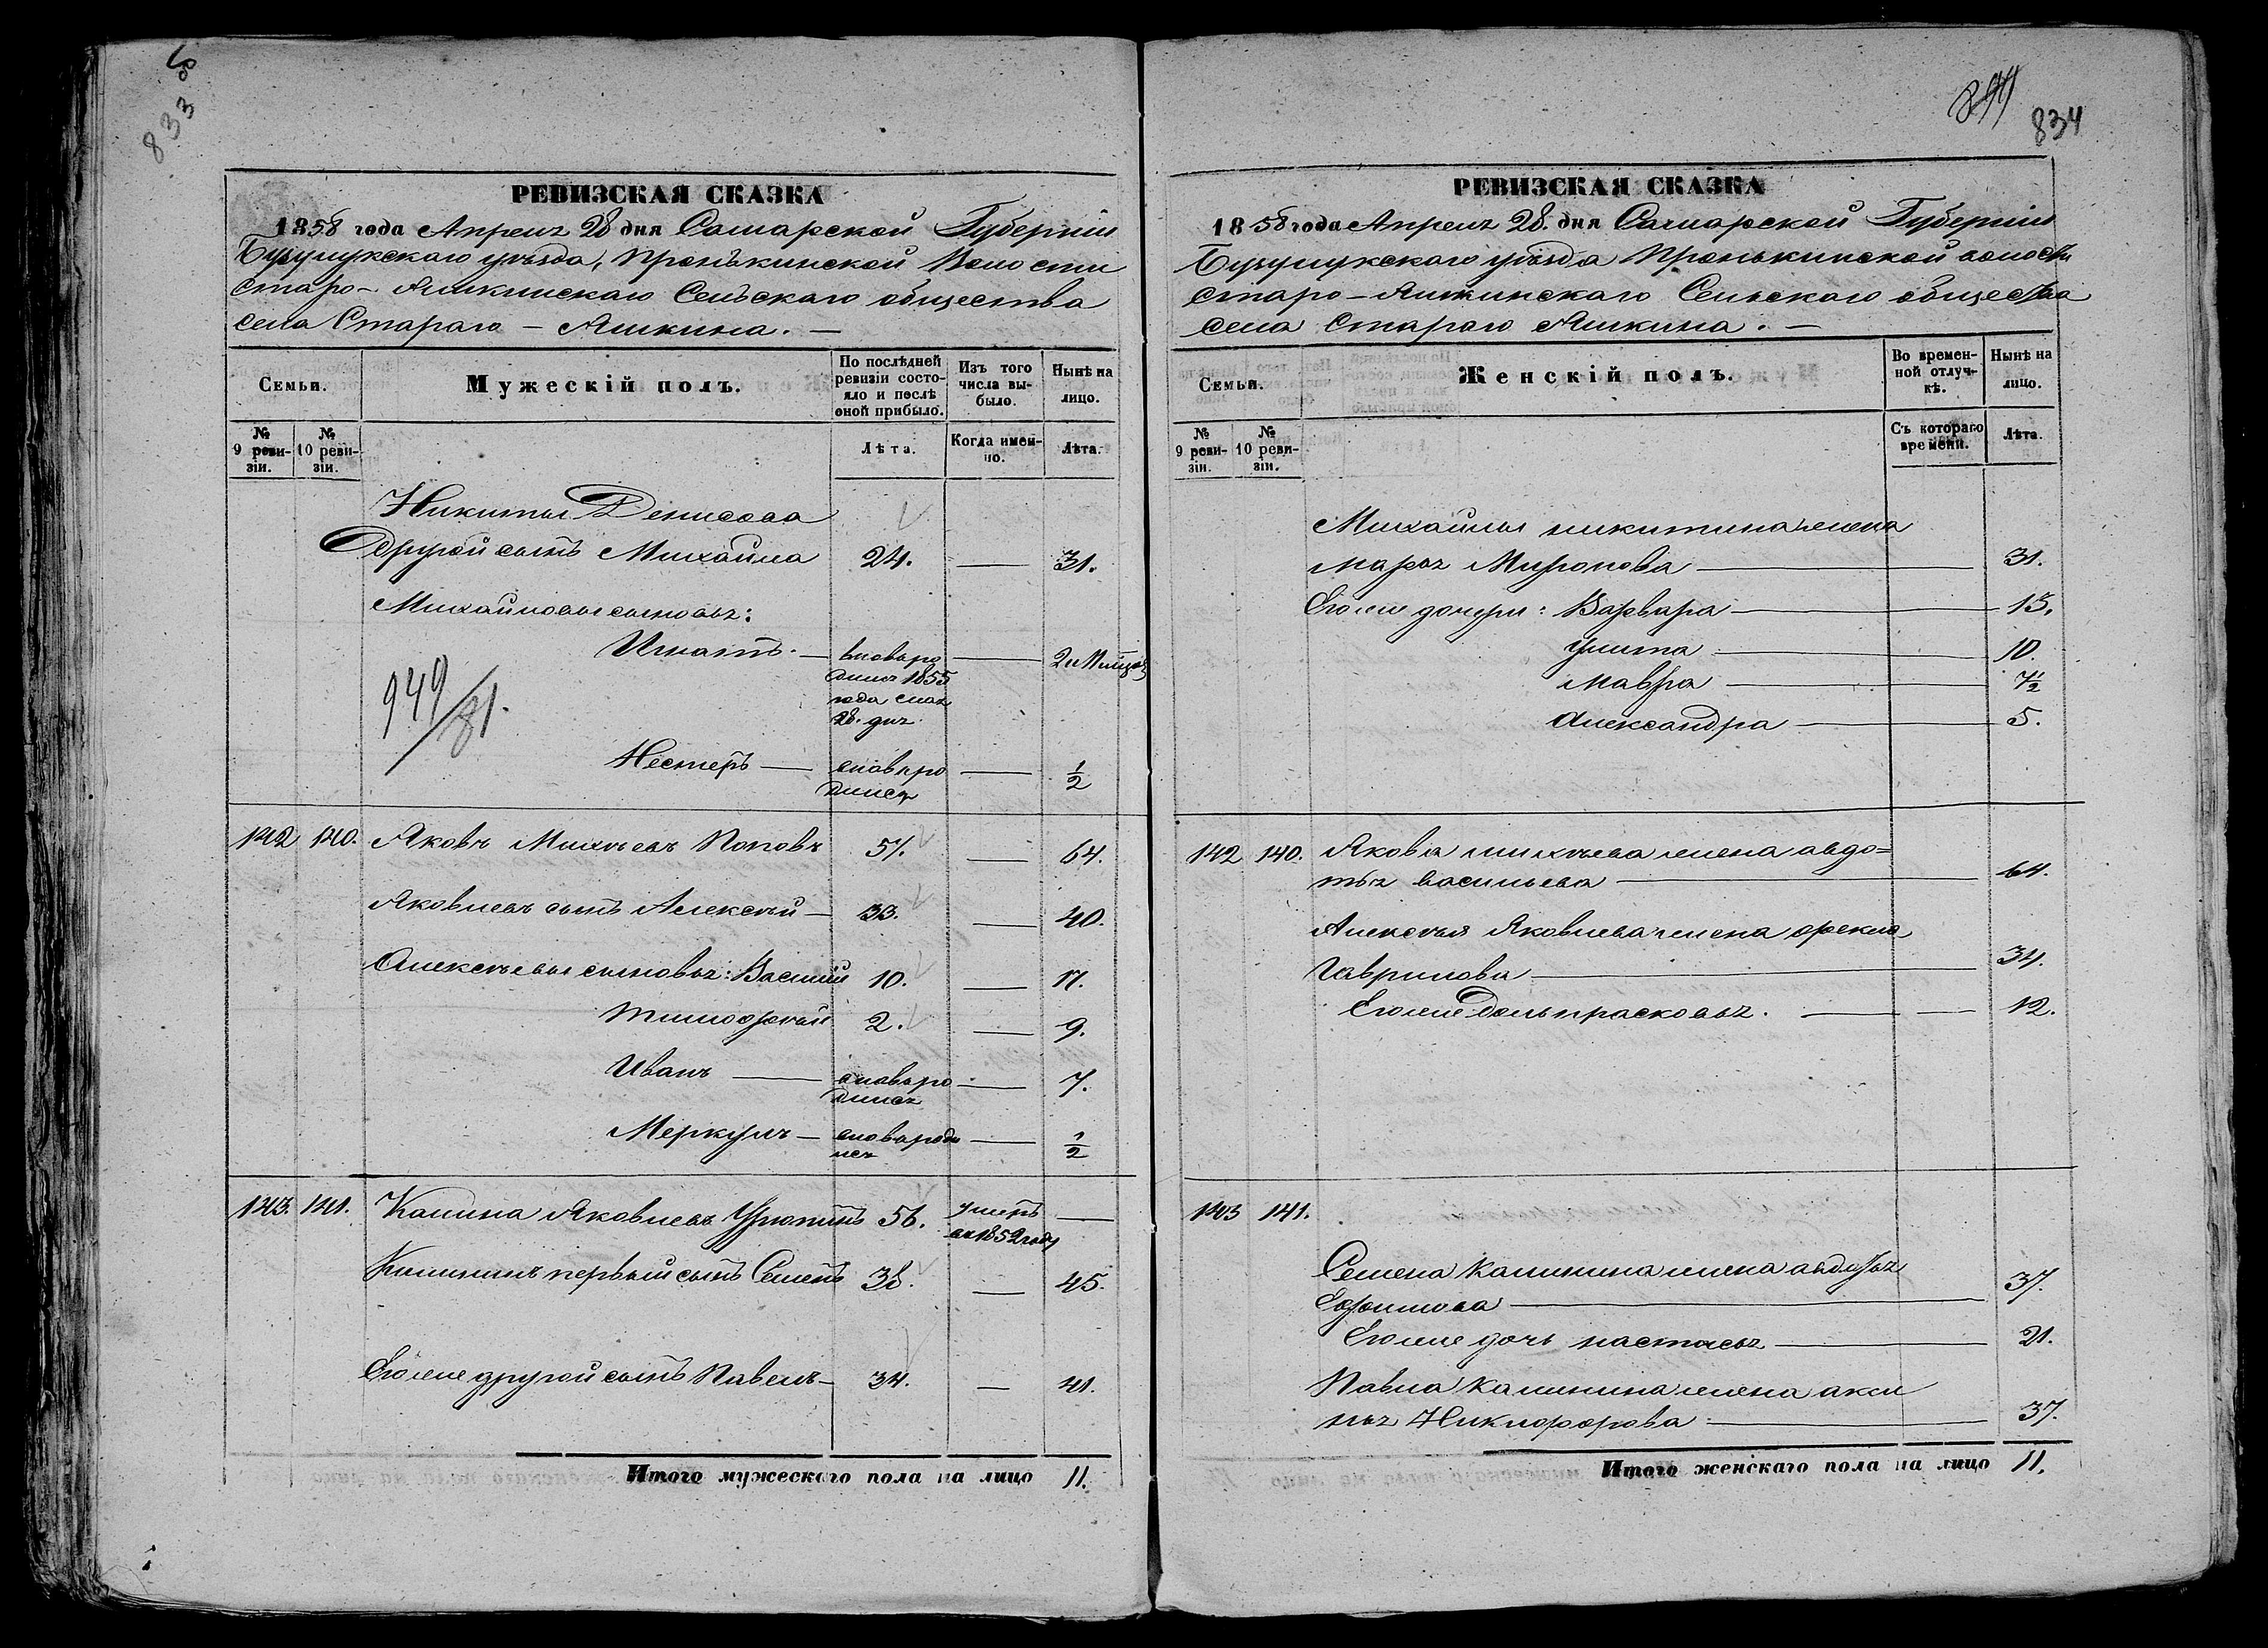 833 об
РЕВИЗСКАЯ СКАЗКА
1858 года Апреля 28 дня Самарской Губернии
Бузулукскаго уѣзда, Пронькинской Волости
Старо-Яшкинскаго Сельскаго общества
села Стараго - Яшкина. -
Семьи.
Мужескій полъ.
По послѣдней ревизіи состояло и послѣ оной прибыло.
Изъ того числа выбыло.
Нынѣ на лицо.
№ 9 ревизіи.
№ 10 ревизіи.
Лѣта.
Когда именно.
Лѣта.
Никиты Денисова
Другой сынъ Михайла 24. — 31.
Михайловы сыновья:
Игнатъ — вновь ро — 2
дился 1855
года мая
28. дня.
949/81.
Нестеръ — вновь ро — 1/2
дился
142 140. Яковъ Михѣевъ Поповъ 57. — 64.
Яковлевъ сынъ Алексѣй — 33. — 40.
Алексѣевы сыновья: Василій 10. — 17.
Тимофѣй 2. — 9.
Иванъ — вновь ро — 7.
дился
Меркулъ — вновь роди — 1/2
лся
143. 141. Калина Яковлевъ Урюпинъ 56. умеръ —
въ 1852 году
Калининъ первый сынъ Семенъ 38. — 45.
Его же другой сынъ Павелъ — 34. — 41.
Итого мужескаго пола на лицо 11.
834
РЕВИЗСКАЯ СКАЗКА
1858 года Апреля 28. дня Самарской Губерніи
Бузулукскаго уѣзда Пронькинской волости
Старо-Яшкинскаго Сельскаго общества
села Стараго Яшкина. -
Семьи.
Женскій полъ.
Во временной отлучкѣ.
Нынѣ на лицо.
№ 9 ревизіи.
№ 10 ревизіи.
Съ котораго времени.
Лѣта.
Михайлы никитина жена
марья Миронова — 31.
Его же дочери: Варвара — 15.
Улита — 10.
Мавра — 7 1/2
Александра — 5.
142 140. Якова михѣева жена авдо=
тья васильева — 64.
Алексѣя Яковлева жена фекла
Гаврилова — 34.
Его же дочь прасковья. — 12.
143 141.
Семена Калинина жена авдотья
Ефимова — 37.
Его же дочь настасья — 21.
Павла Калинина жена акси
нья Никифорова — 37.
Итого женскаго пола на лицо 11.